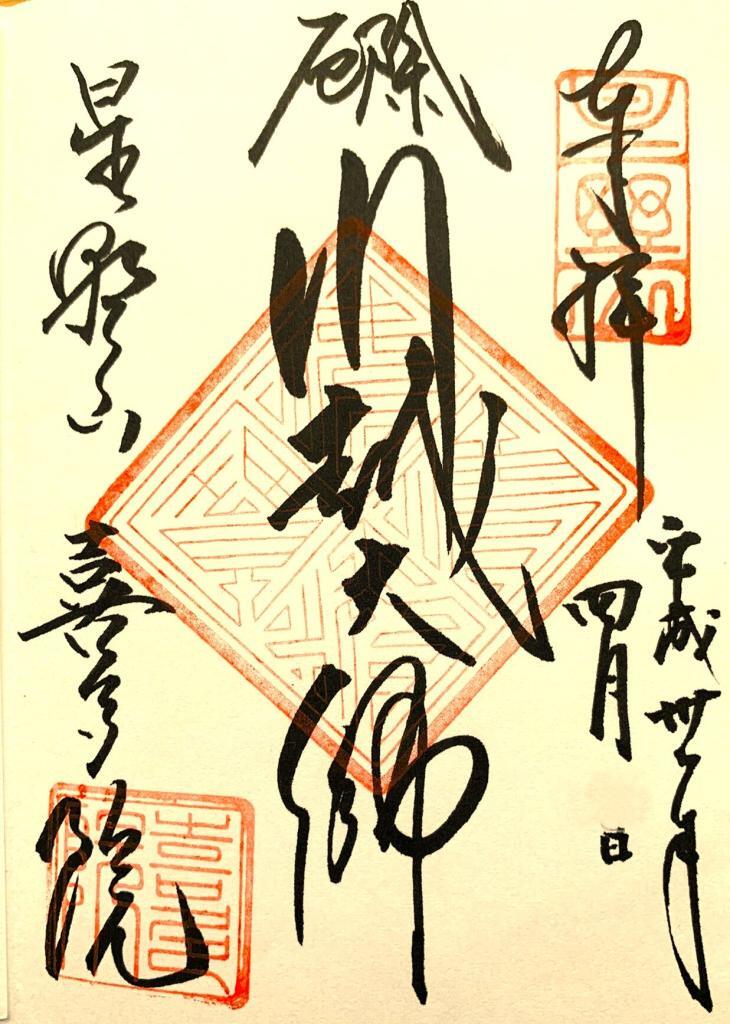 奉拝
平成卅一年
四月 日
厄除
川越大師
星野山
喜多院
喜多院